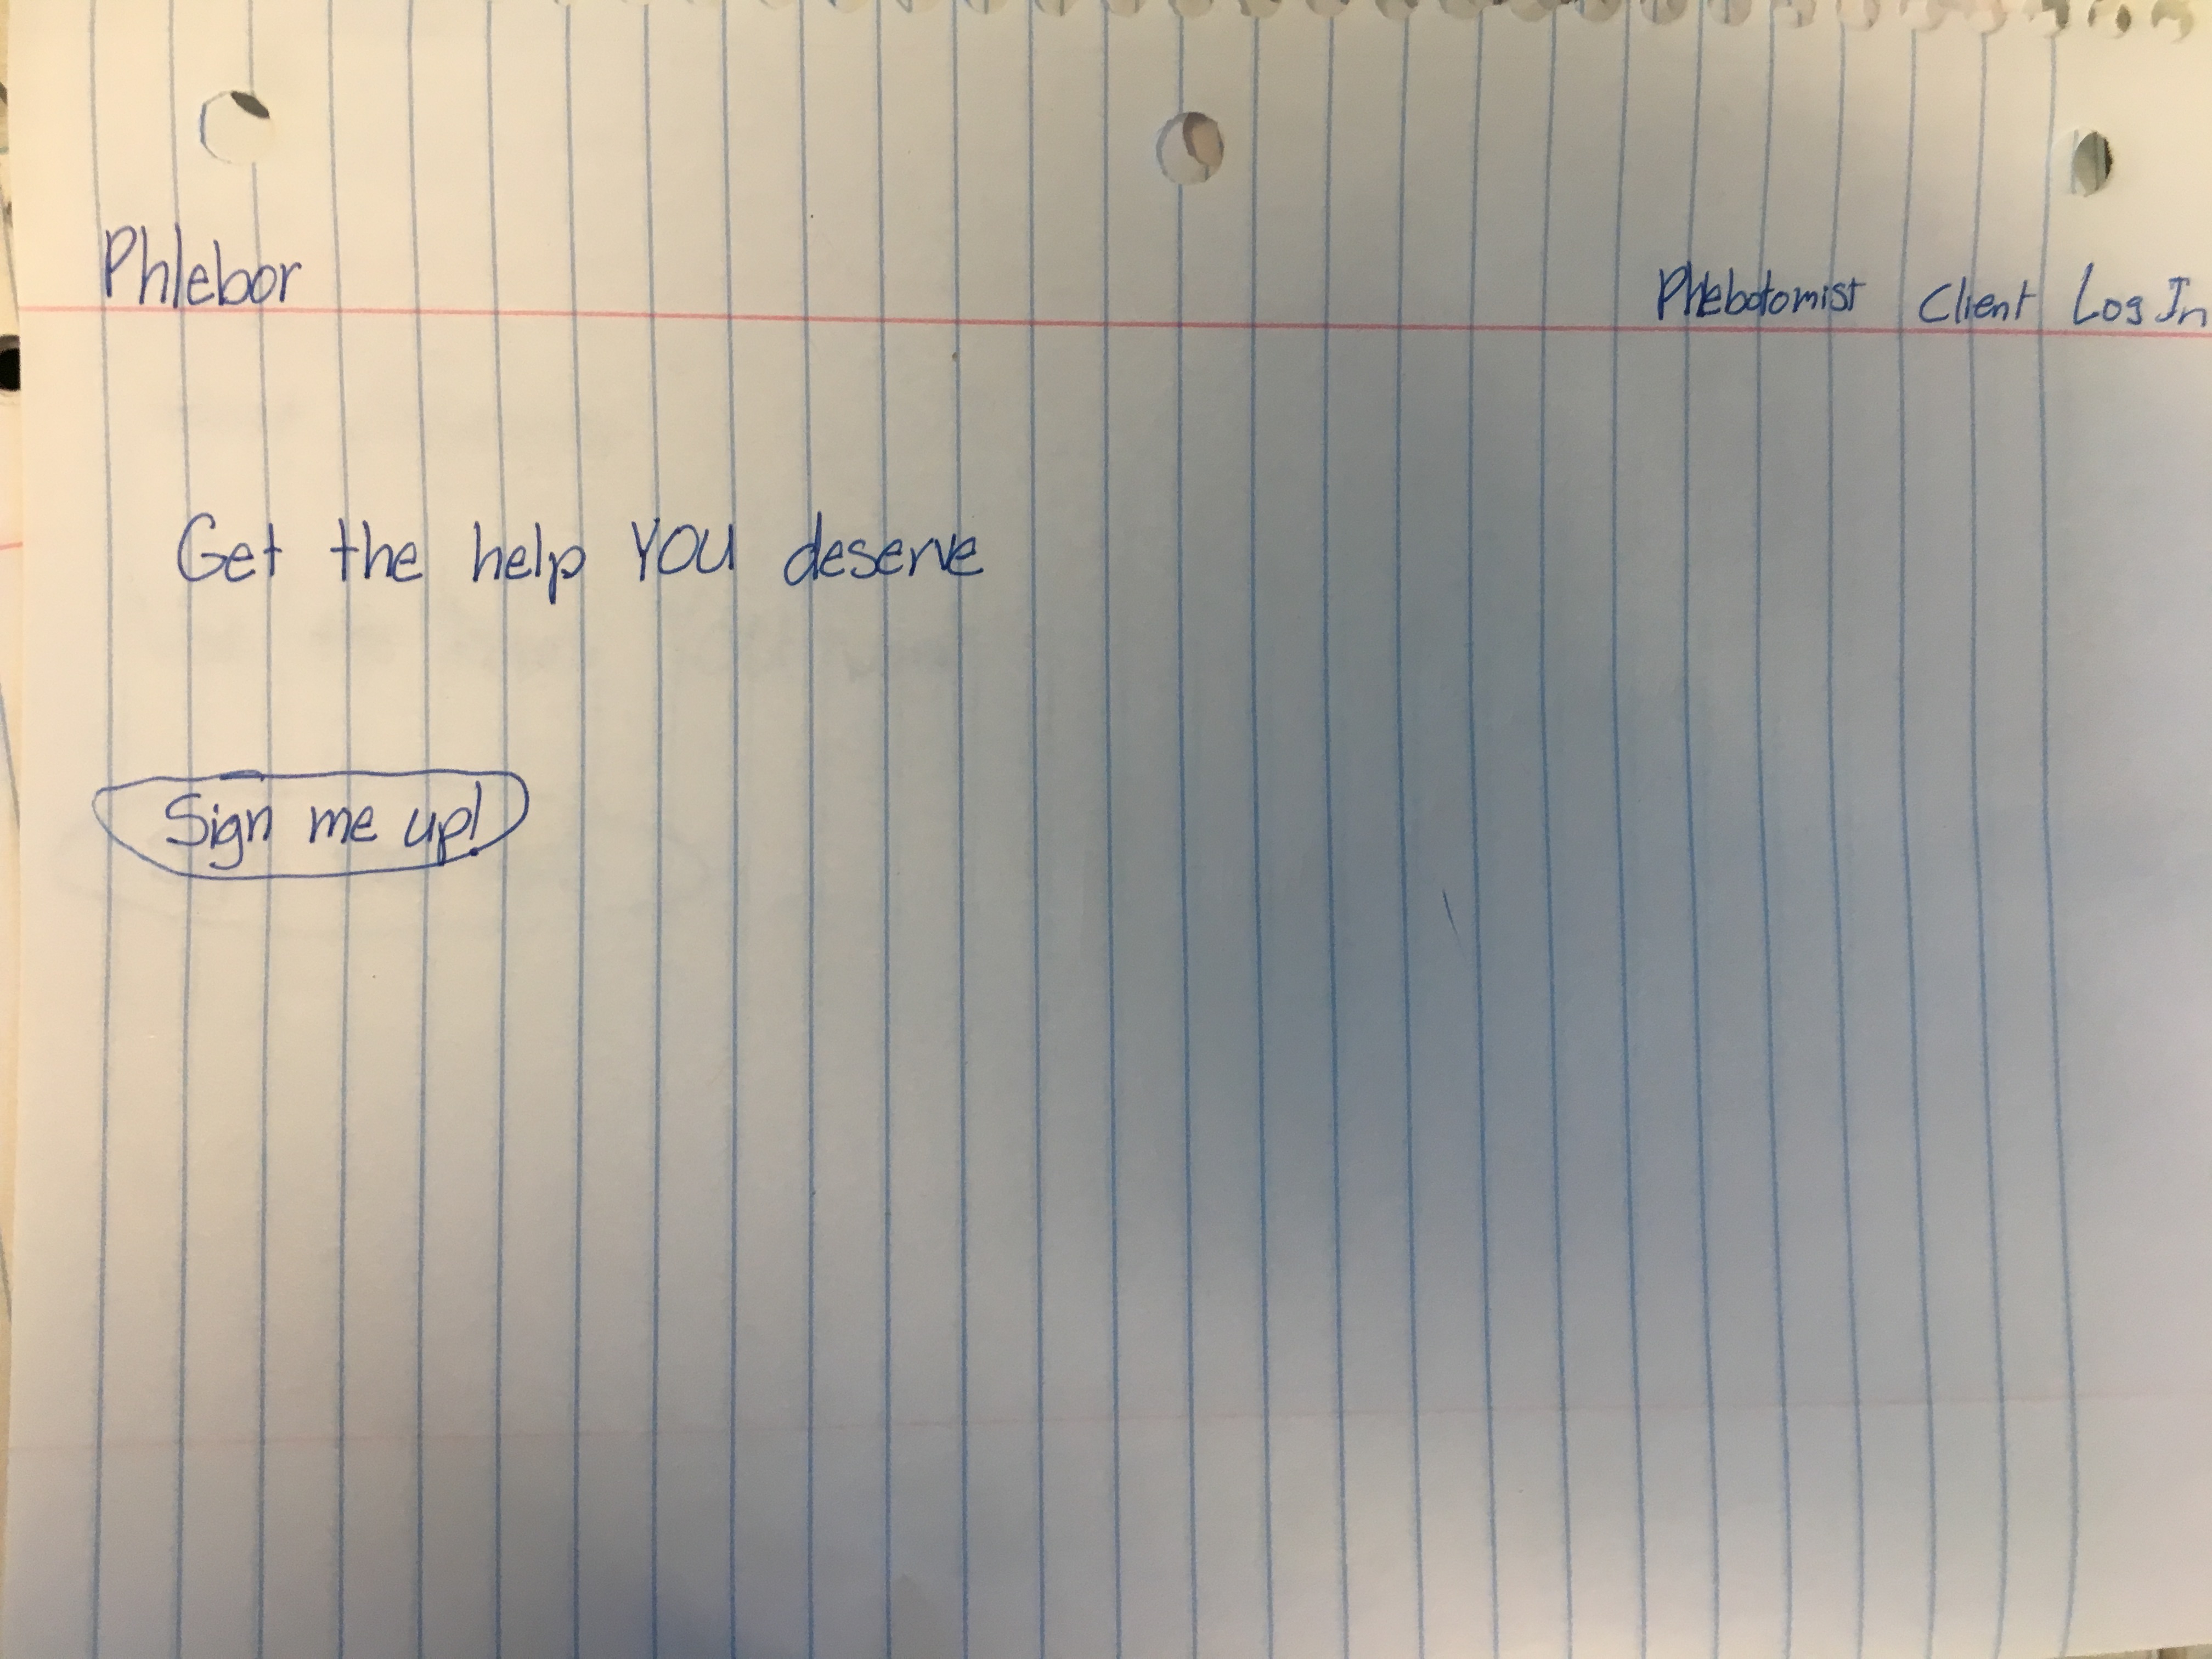 Phlebor
Phlebotomist Client Log In
Get the help YOU deserve
Sign me up!